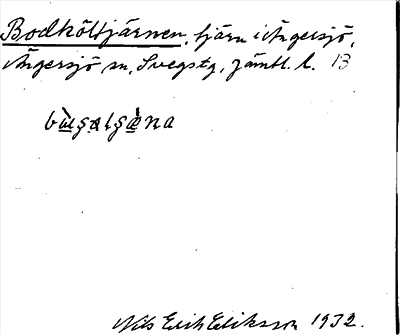 Bodköltjärnen, tjärn i Ängersjö,
Ängersjö sn, Svegs tg, Jämtl. l. 13
Nils Erik Eriksson 1932.